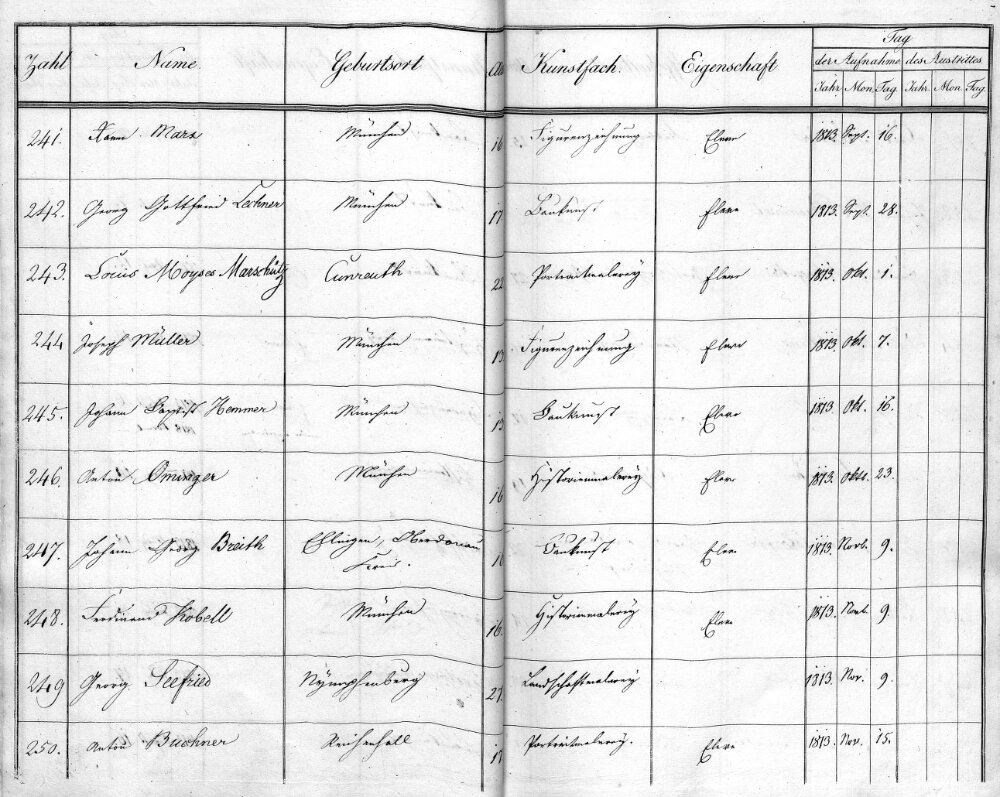 Tag
Zahl Name. Geburtsort Alt Kunstfach. Eigenschaft der Aufnahme des Austrittes
Jahr Mon. Tag Jahr. Mon. Tag
241. Marx München 16 Figurenzeichnung Eleve 1813. Sept. 16.
242. Georg Gottfried Lechner München 17 Baukunst Eleve 1813. Sept. 28.
243. Louis Moyses Marschütz Cunreuth 22 Portraitmalerey Eleve 1813. Okt. 1.
244 Joseph Müller. München 13 Figurenzeichnung Eleve 1813. Okt. 7.
245. Johann Baptist Hemmer München 15 Baukunst Eleve 1813. Okt. 16.
246. Anton Ominger München 16 Historienmalerey Eleve 1813. Okt. 23.
247. Johann Georg Breith Ehlingen, Oberdonau
Kreis. 16 Baukunst Eleve 1813. Novb. 9.
248. Ferdinand Kobell München 16. Historienmalerey Eleve 1813. Novb. 9.
249 Georg Seefried Nymphenburg 27. Landschaftmalerey 1813. Nov. 9.
250. Anton Buchner Reichenhall Portraitmalerey. Eleve 1813. Nov. 15.